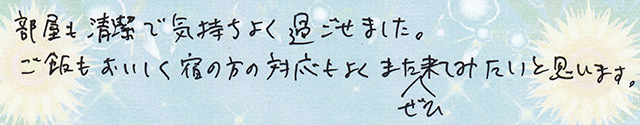 部屋も清潔で気持ちよく過ごせました。
ご飯もおいしく宿の方の対応もよくまた来てみたいと思います。
ぜひ